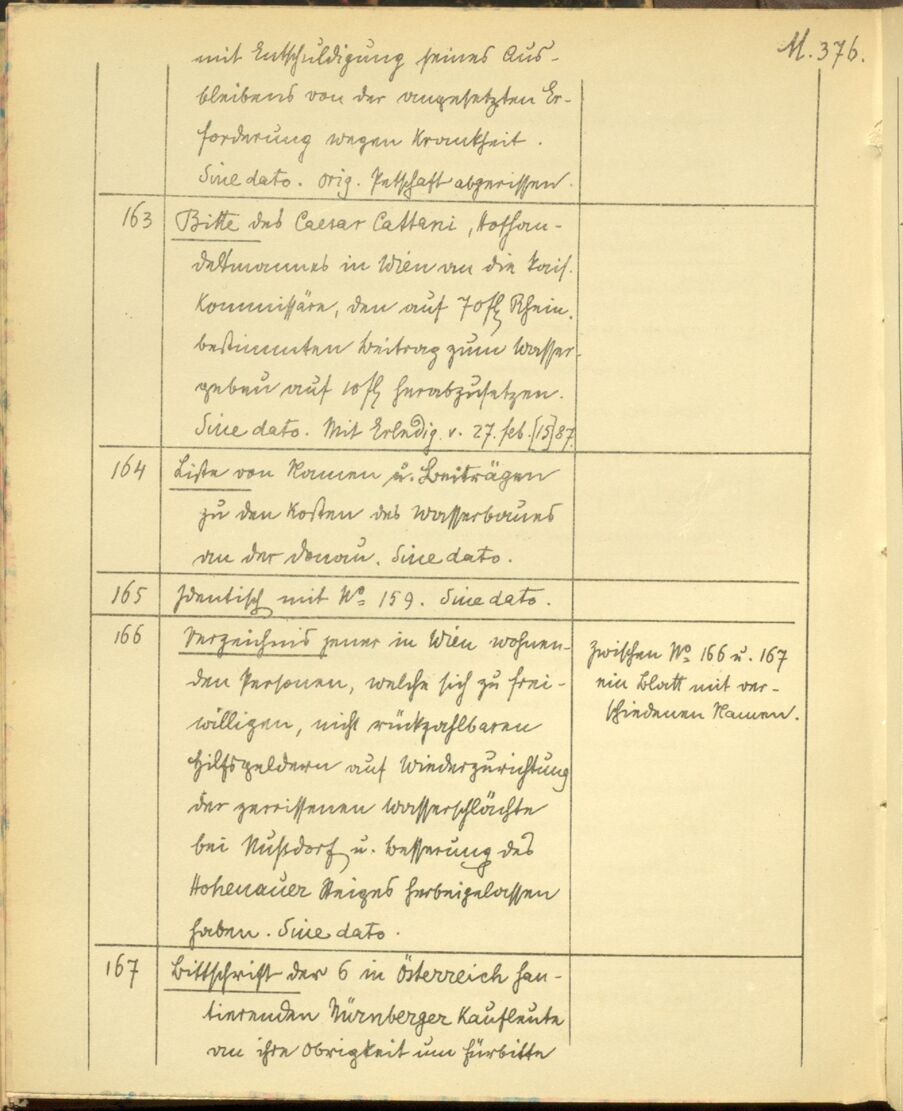 M. 376.
mit Entschuldigung seines Aus-
bleibens von der angesetzten Er-
forderung wegen Krankheit.
Sine dato. Orig. Petschaft abgerissen.
163 Bitte des Caesar Cattani, Hofhan-
delsmannes in Wien an die kais.
Kommissäre, den auf 70 fl Rhein.
bestimmten Beitrag zum Wasser-
gebäu auf 10 fl herabzusetzen.
Sine dato. Mit Erledig. v. 27. Feb. [15]87.
164 Liste von Namen u. Beiträgen
zu den Kosten des Wasserbaues
an der Donau. Sine dato.
165 Identisch mit No 159. Sine dato.
166 Verzeichnis jener in Wien wohnen-
den Personen, welche sich zu frei-
willigen, nicht rückzahlbaren
Hilfsgeldern auf Wiederzurichtung
der zerrissenen Wasserschlächte
bei Nußdorf u. Besserung des
Hohenauer Steiges herbeigelassen
haben. Sine dato.
Zwischen No 166 u. 167
ein Blatt mit ver-
schiedenen Namen.
167 Bittschrift der 6 in Österreich han-
tierenden Nürnberger Kaufleute
an ihre Obrigkeit um Fürbitte